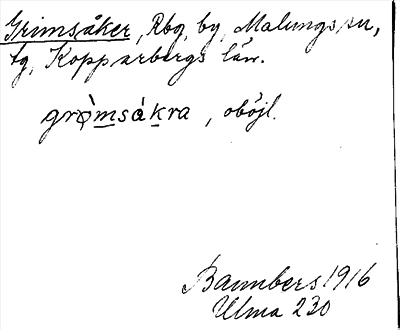 Grimsåker, Rbg, by, Malungs sn,
tg, Kopparbergs län.
grømsåkra, oböjl.
Bannbers 1916
Ulma 230